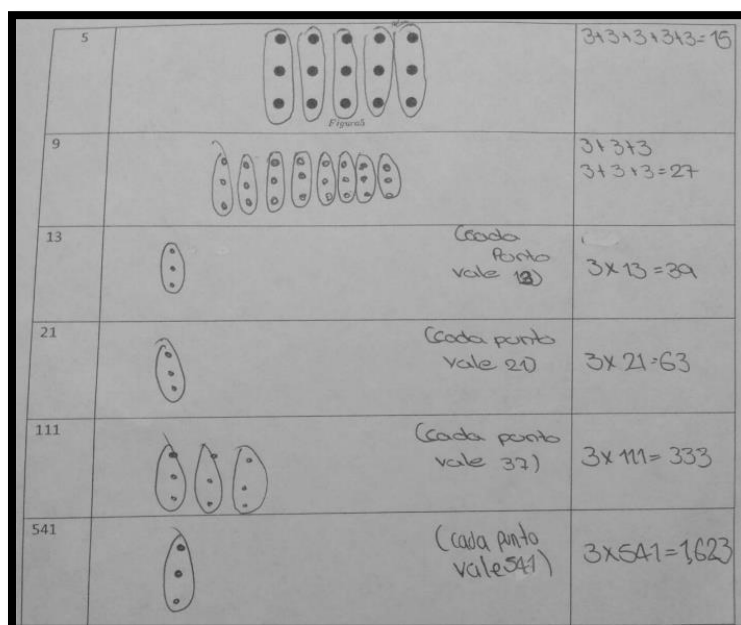 5
3+3+3+3+3=15
Figura5
9
3+3+3
3+3+3=27
13
(cada
Punto
vale 13)
3x13=39
21
(cada punto
vale 21)
3x21=63
111
(cada punto
vale 37)
3x111=333
541
(cada punto
vale 541)
3x541=1,623